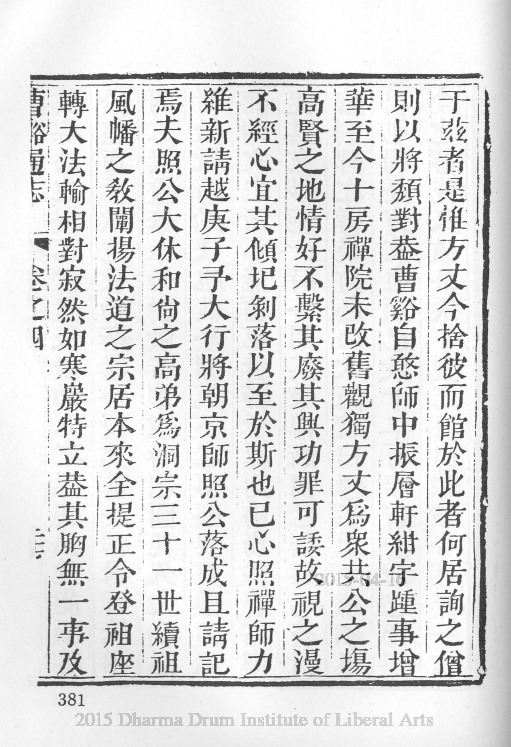 于茲者是誰方丈今捨彼而館於此者何居詢之僧
則以將頹對葢曹谿自憨師中振層軒紺宇踵事增
華至今十房禪院未改舊觀獨方丈爲衆共公之塲
高賢之地情好不繫其廢其興功罪可諉故視之漫
不經心宜其傾圮剝落以至於斯也已心照禪師力
維新請越庚子予大行將朝京師照公落成且請記
焉夫照公大休和尙之高弟爲洞宗三十一世續祖
風幡之敎闡揚法道之宗居本來全提正令登祖座
轉大法輪相對寂然如寒巖特立葢其胸無一事及
曹谿通志
卷之四
381
2015 Dharma Drum Institute of Liberal Arts